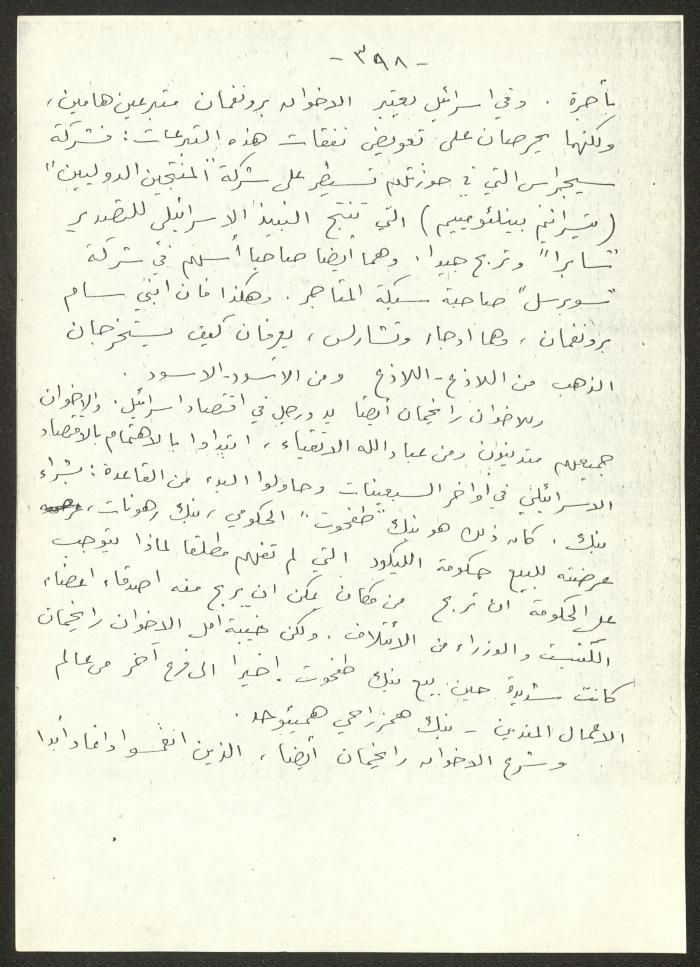 - ٣٩٨ -
بأجرة . وفي اسرائيل يعتبر الاخوان برونفمان متبرعين هامين،
ولكنهما يحرصان على تعويض نفقات هذه التبرعات: فشركة
سيجرامس التي في حوزتهم تسيطر على شركة "المنتجين الدوليين"
( بينلئومييم ) التي تنتج النبيذ الاسرائيلي للتصدير
"سابرا" وتربح جيدا. وهما أيضا صاحبا أسهم في شركة
"سوبرسل" صاحبة شبكة المتاجر. وهكذا فان ابني سام
برونفمان ، وهما ادجار وتشارلس ، يعرفان كيف يستخرجان
الذهب من اللاذع - اللاذع ومن الأسود - الاسود .
وللاخوان رايخمان أيضا يد ورجل في اقتصاد اسرائيل. والاخوان
جميعهم متدينون ومن عباد الله الاتقياء ، ابتدأوا بالاهتمام بالاقتصاد
الاسرائيلي في أواخر السبعينات وحاولوا البدء من القاعدة: بشراء
بنك . كان ذلك هو بنك "طفحوت" الحكومي ، بنك رهونات،
عرضته للبيع حكومة الليكود التي لم تفهم مطلقا لماذا يتوجب
على الحكومة ان تربح من مكان يمكن ان يربح منه اصدقاء اعضاء
الكنيست والوزراء من الائتلاف . ولكن خيبة امل الاخوان رايخمان
كانت شديدة حين بيع بنك طفحوت اخيرا الى فرع آخر من عالم
الاعمال المتدين - بنك همزراحي همئوحد .
وشرع الاخوان رايخمان أيضا ، الذين انغمسوا دائما وأبدا